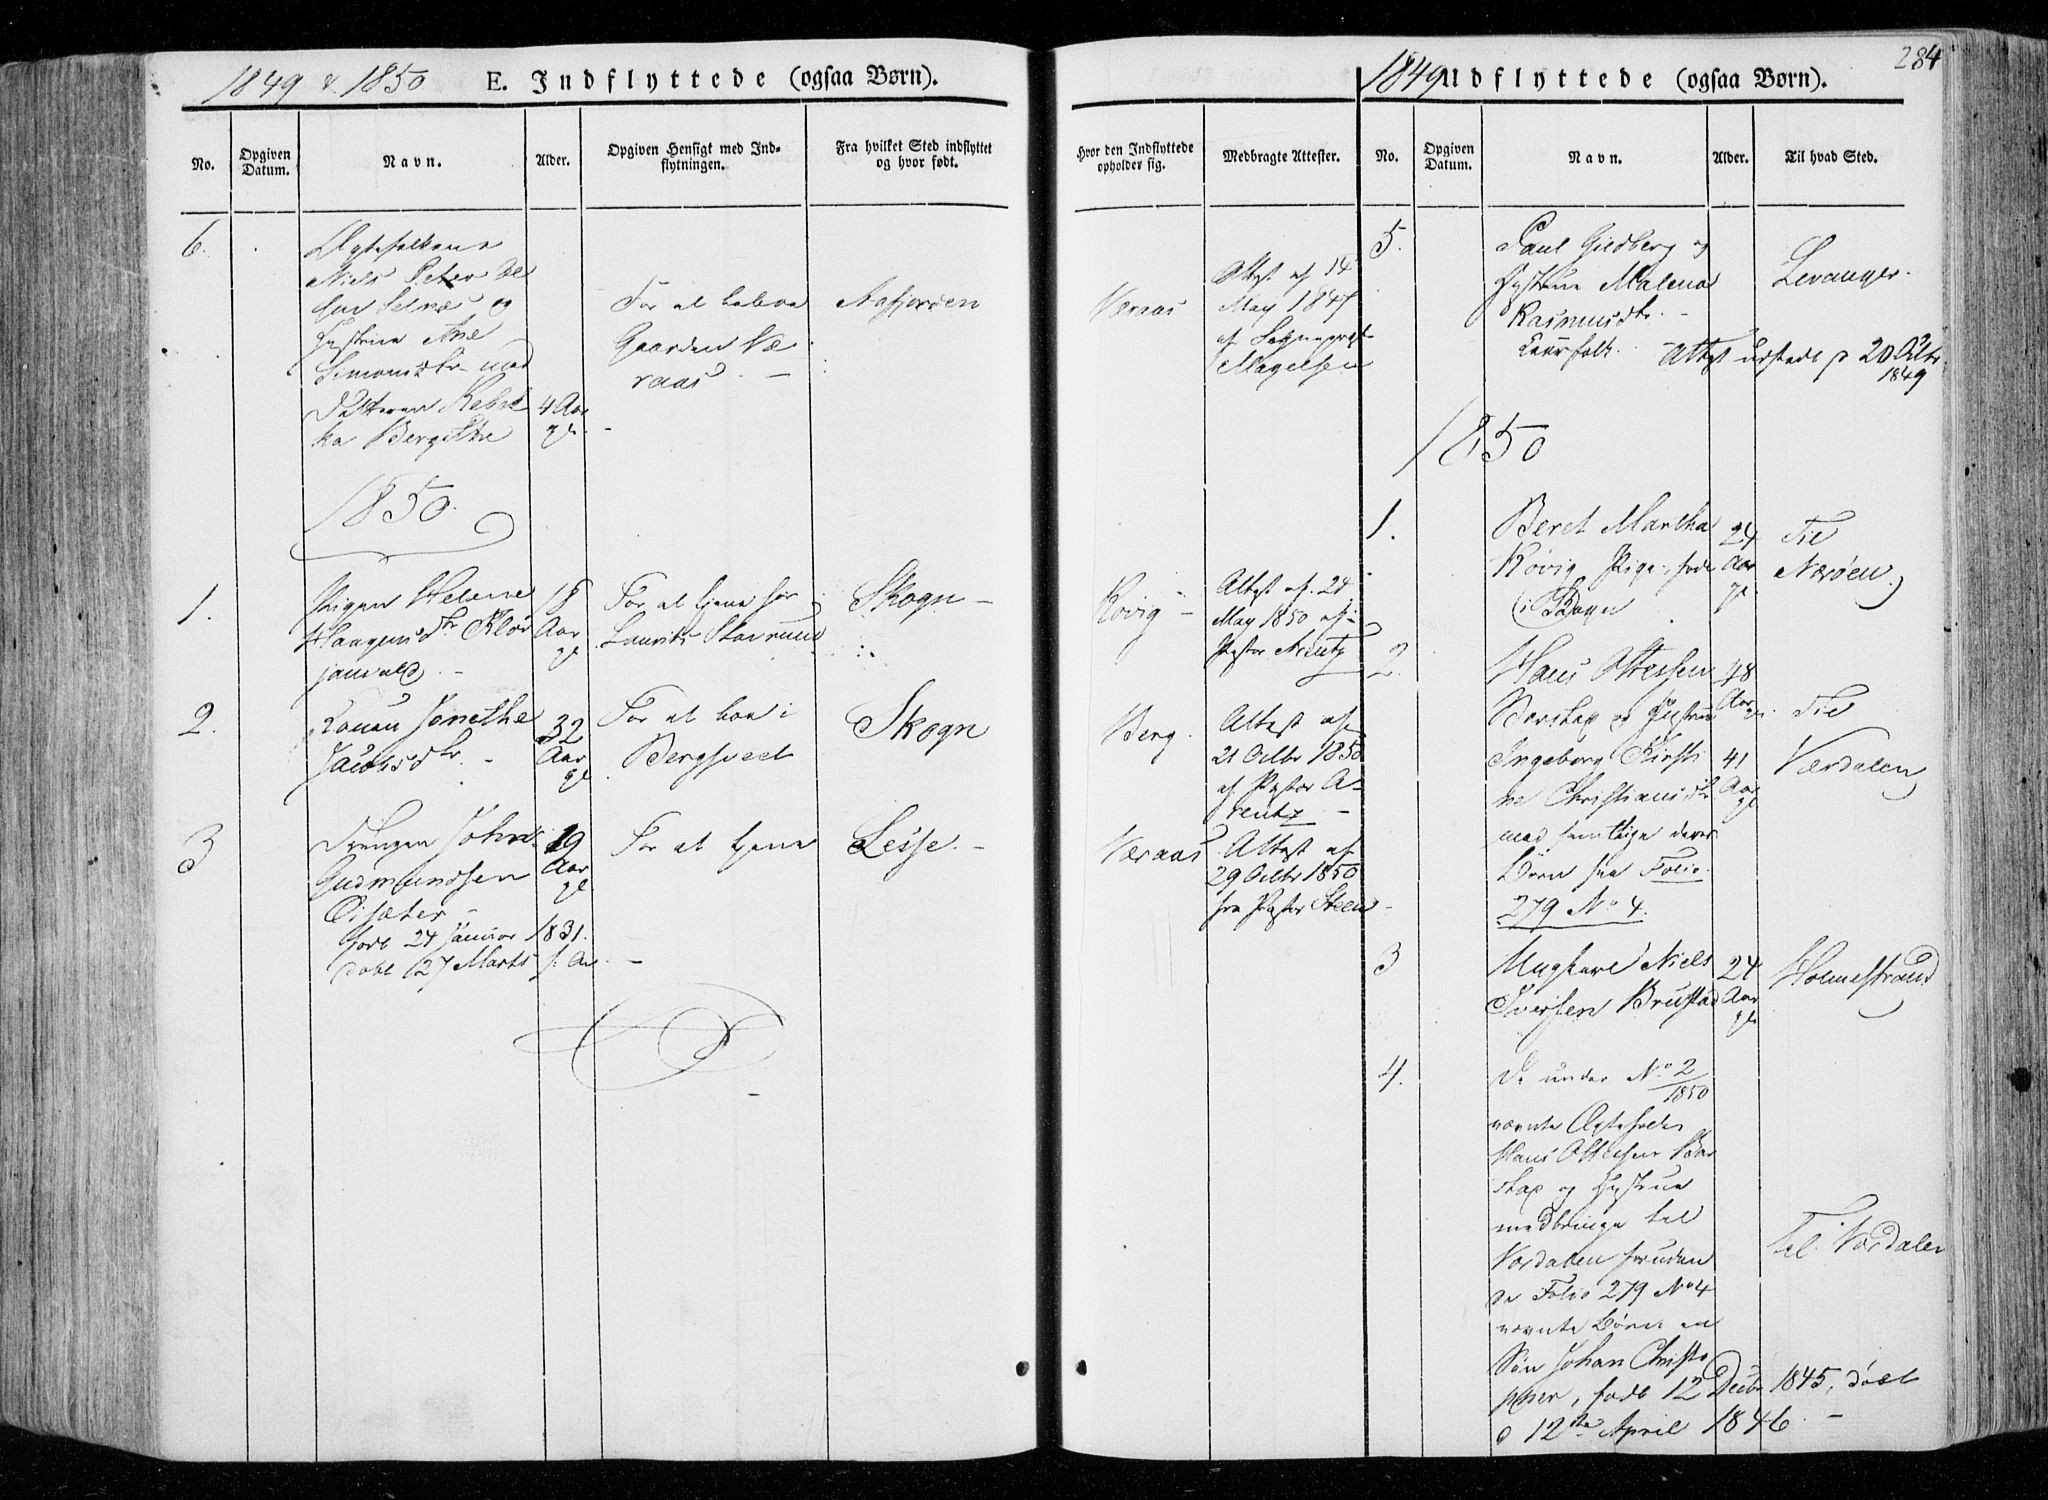 284
1849 & 1850 E. Indflyttede (ogsaa Børn).
No.
Opgiven Datum.
Navn.
Alder.
Opgiven Hensigt med Ind-
flytningen.
Fra hvilket Sted indflyttet
og hvor født.
Hvor den Indflyttede
opholder sig.
Medbragte Attester.
6.
Ægtefolkene
Niels Peter Ol
sen Selnæs og
Hustrue Ane
Simonsdtr med
Datteren Rebek
ka Bergithe
4 Aar
gl.
For at købe
Gaarden Væ
raas. —
Aafjorden
Væraas
Attest af 14
May 1847
af Sognepræst
Magelsen
1850.
1.
Pigen Helene
Haagensdtr
18
Aar
gl.
For at tjene hos
Laurits
Skogn —
Rovig —
Attest af 24
May 1850 af
Pastor Arentz
2.
Konen Jonethe
Jacobsdtr. -
32
Aar
gl.
For at boe i
Bergsveet
Skogn
Berg.
Attest af
21 Octbr 1850
af Pastor A-
rentz —
3
Drengen John
Gudmundsen
Øisæter -
født 24 Januar 1831.
døbt 27 Marts s. A. —
19
Aar
gl.
For at tjene
Lesje. —
Væraas
Attest af
29 Octbr 1850
fra Pastor Steen -
1849 Udflyttede (ogsaa Børn).
No.
Opgiven
Datum.
Navn.
Alder.
Til hvad Sted.
5.
Paul Gildberg og
Hystrue Malena
Rasmusdtr. -
Levanger.
Attest udstedt p 20 Octbr
1849
1850
1.
Beret Martha
Rövig, Pige, føde
i Skogn
24
Aar
gl.
Til
Nærøen.
2.
Hans Ottesen
Borstap og Hystrue
Ingeborg Kirsti
ne Christiansdtr
med samtlige deres
Börn see Folio.
279 No 4.
48
Aar
gl.
41
Aar
gl.
Til
Værdalen
3
Ungkarl Niels
Iversen Brustad
24
Aar
gl.
Holmestrand
4.
De under No 2
1850
nævnte Ægtefolk
Hans Ottesen Bor
stap og Hystrue
medbringe til
Værdalen foruden
de Folio 279 No 4
nævnte Börn en
Sön Johan Christo
pher, født 12 Decbr 1845, döbt
d 12te April 1846. —
til Værdalen